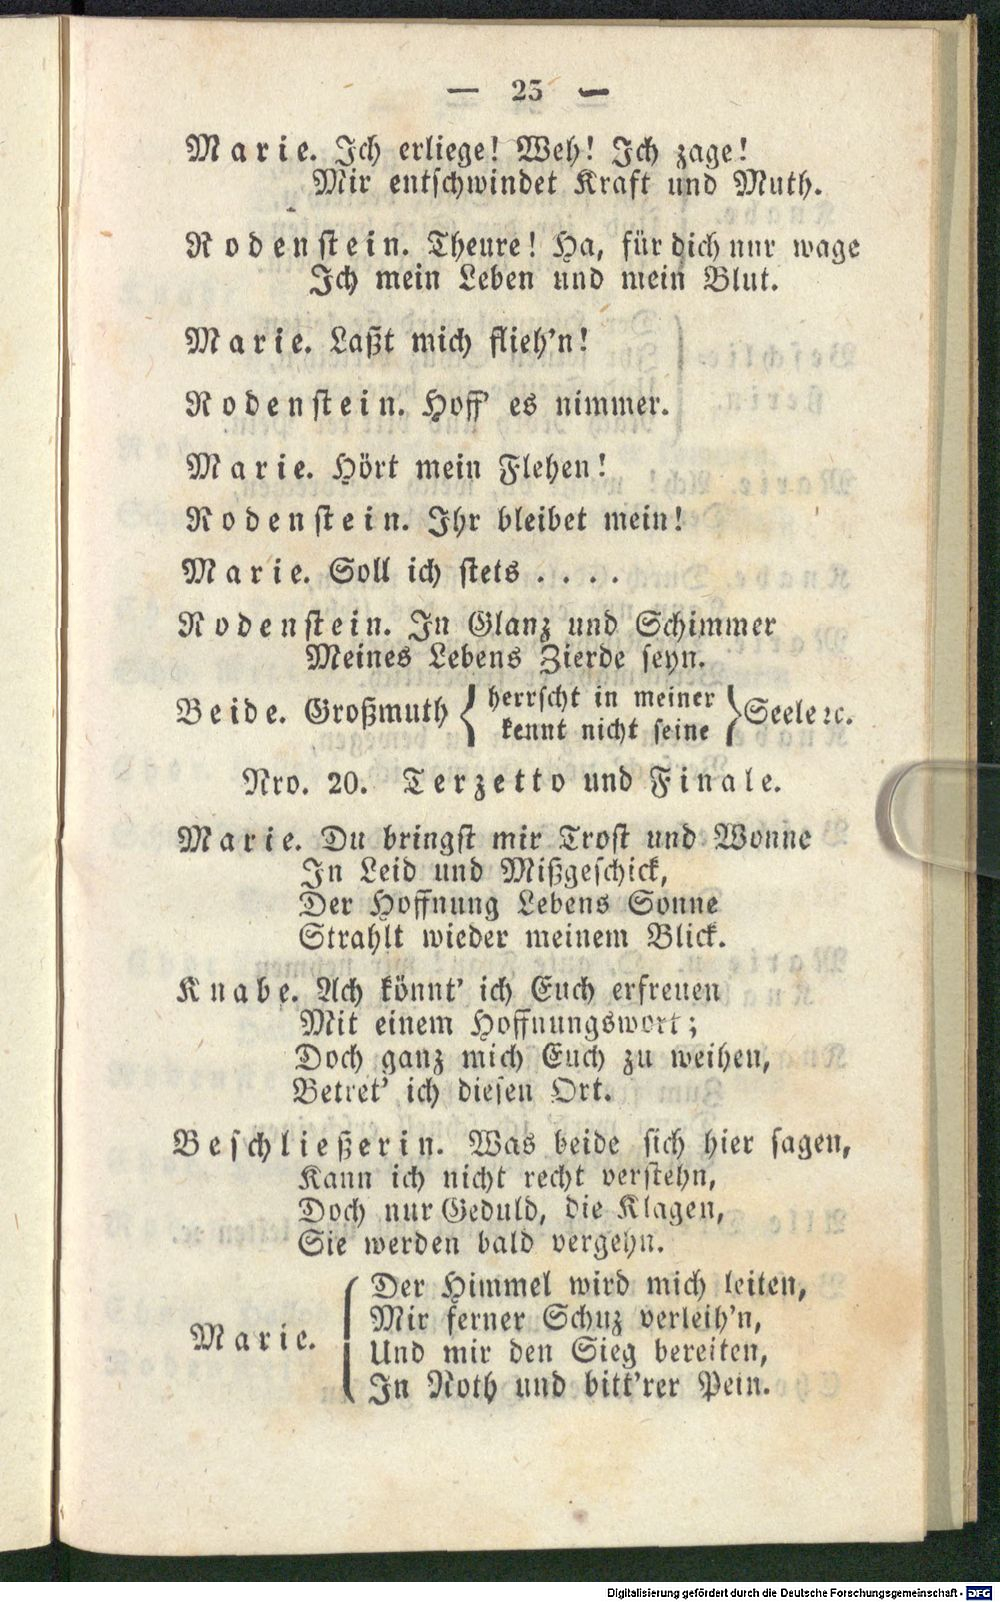 — 23 —
Marie. Ich erliege! Weh! Ich zage!
Mir entschwindet Kraft und Muth.
Rodenstein. Theure! Ha, für dich nur wage
Ich mein Leben und mein Blut.
Marie. Laßt mich flieh'n!
Rodenstein. Hoff' es nimmer.
Marie. Hört mein Flehen!
Rodenstein. Ihr bleibet mein!
Marie. Soll ich stets . . . .
Rodenstein. In Glanz und Schimmer
Meines Lebens Zierde seyn.
Beide. Großmuth { herrscht in meiner } Seele ꝛc.
kennt nicht seine
Nro. 20. Terzetto und Finale.
Marie. Du bringst mir Trost und Wonne
In Leid und Mißgeschick,
Der Hoffnung Lebens Sonne
Strahlt wieder meinem Blick.
Knabe. Ach könnt' ich Euch erfreuen
Mit einem Hoffnungswort;
Doch ganz mich Euch zu weihen,
Betret' ich diesen Ort.
Beschließerin. Was beide sich hier sagen,
Kann ich nicht recht verstehn,
Doch nur Geduld, die Klagen,
Sie werden bald vergehn.
Marie. { Der Himmel wird mich leiten,
Mir ferner Schuz verleih'n,
Und mir den Sieg bereiten,
In Noth und bitt'rer Pein.
Digitalisierung gefördert durch die Deutsche Forschungsgemeinschaft - DFG